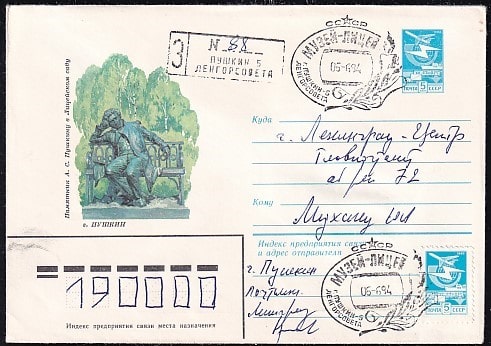 СССР
З
N 88
ПУШКИН 5
ЛЕНГОРСОВЕТА
МУЗЕЙ-ЛИЦЕЙ
06-6.94
Г. ПУШКИН-5
ЛЕНГОРСОВЕТА
ПОЧТА 5 СССР
Памятник А. С. Пушкину в Лицейском саду
г. ПУШКИН
Куда
г. Ленинград - Центр
Главпочтамт
72
Кому
Индекс предприятия связи
и адрес отправителя
г. Пушкин
СССР
МУЗЕЙ-ЛИЦЕЙ
06-6.94
Г. ПУШКИН-5
ЛЕНГОРСОВЕТА
ПОЧТА 5 СССР
190000
Индекс предприятия связи места назначения